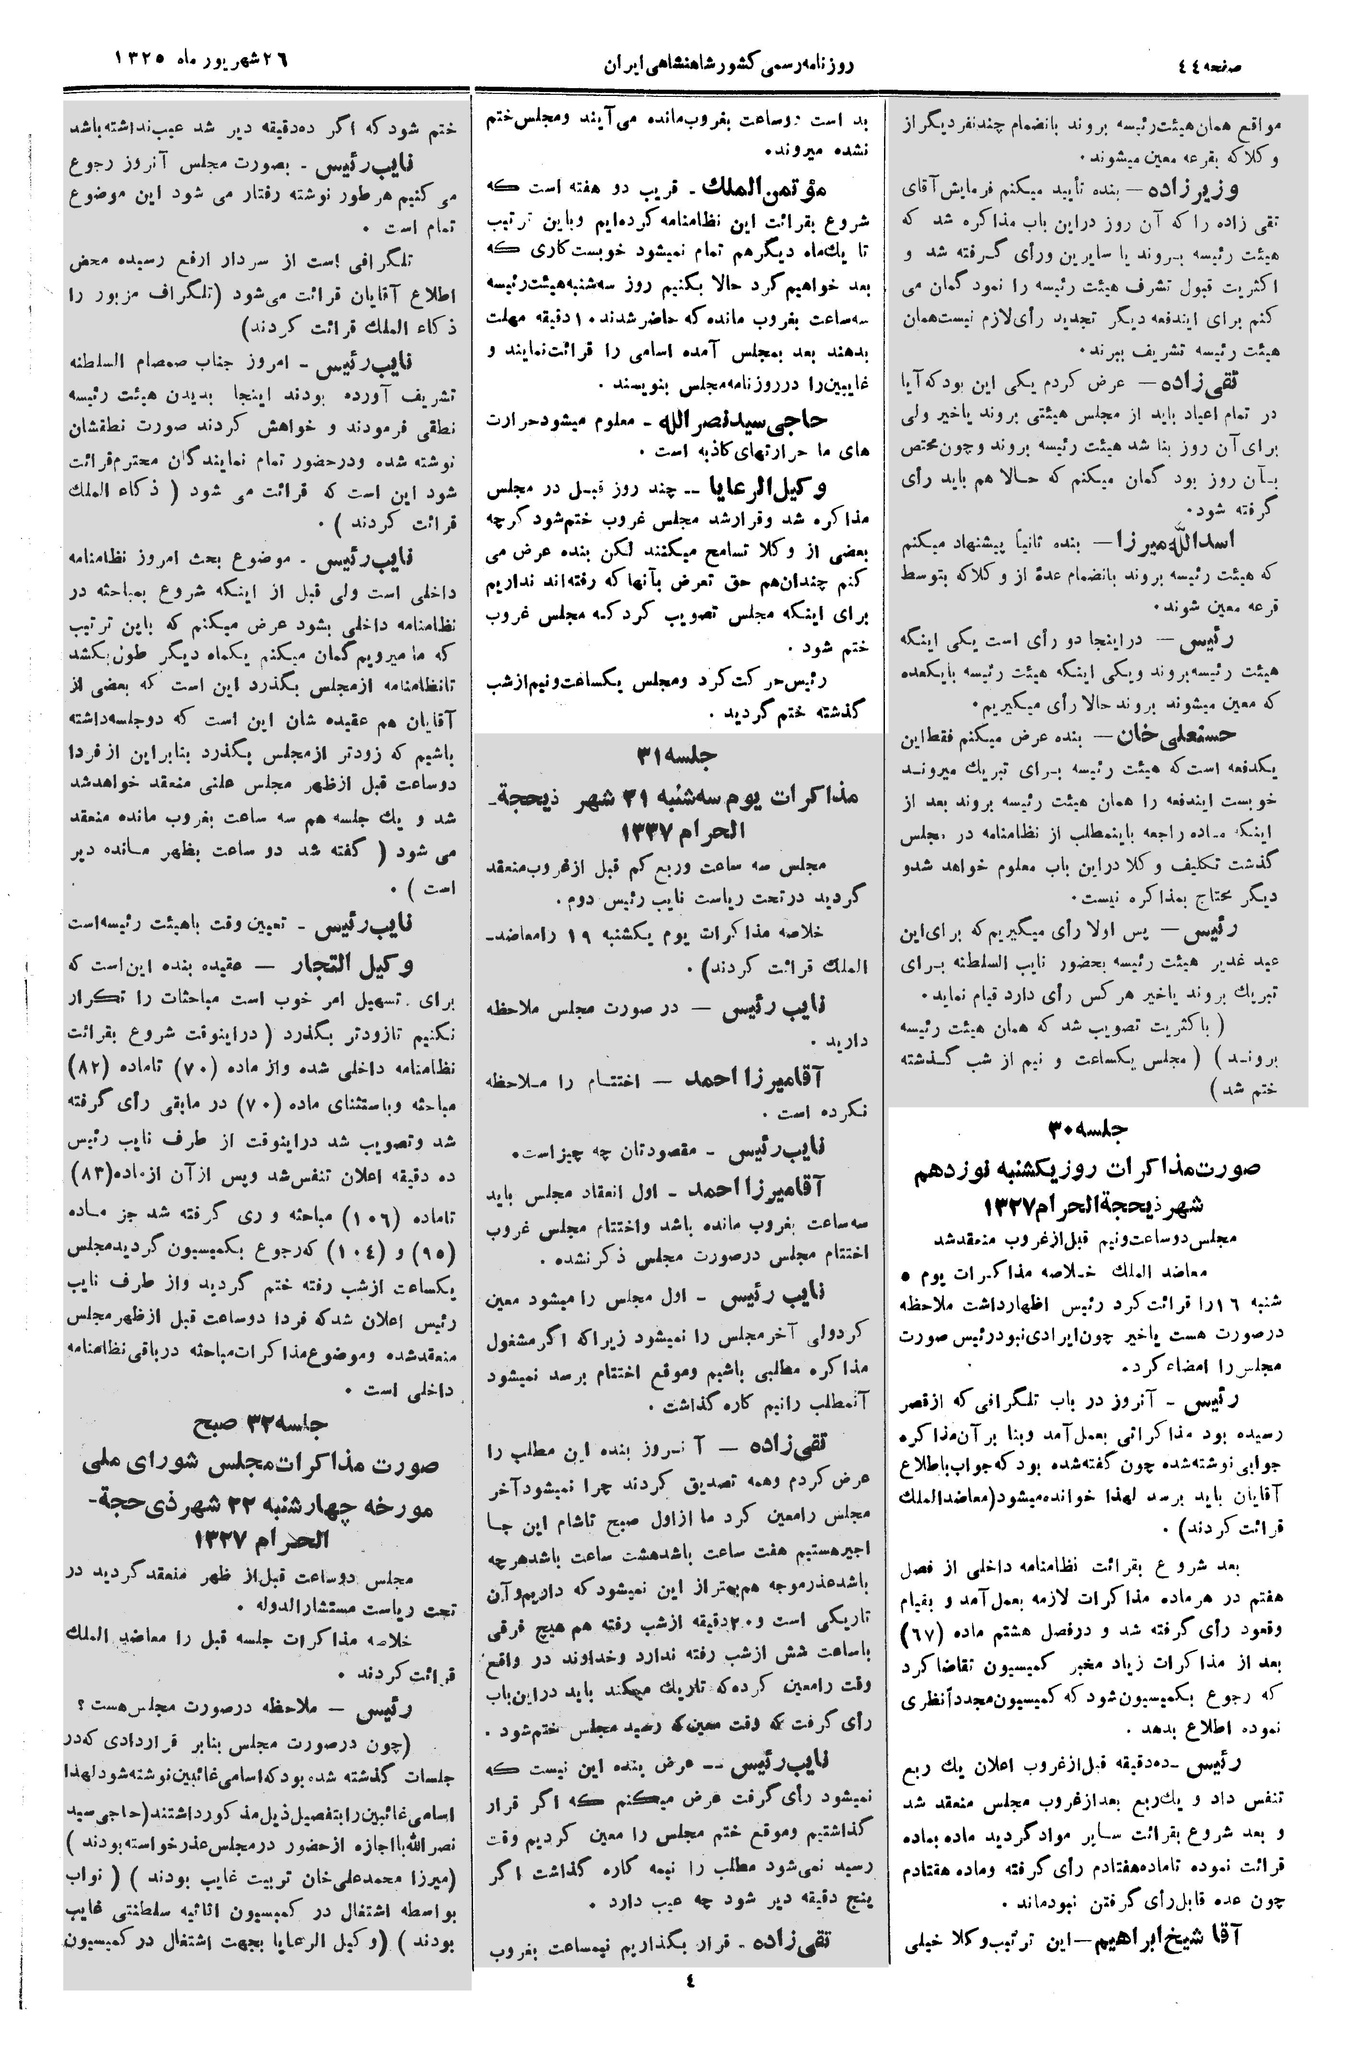 صفحه ۴۴
روزنامه رسمی کشور شاهنشاهی ایران
۲۶ شهریور ماه ۱۳۲۵
مواقع همان هیئت رئیسه بروند بانضمام چند نفر دیگر از
وکلا که بقرعه معین میشوند.
وزیرزاده — بنده تأیید میکنم فرمایش آقای
تقی زاده را که آن روز در این باب مذاکره شد که
هیئت رئیسه بروند یا سایرین و رأی گرفته شد و
اکثریت قبول تشرف هیئت رئیسه را نمود گمان می
کنم برای ایندفعه دیگر تجدید رأی لازم نیست همان
هیئت رئیسه تشریف ببرند.
تقی زاده — عرض کردم یکی این بود که آیا
در تمام اعیاد باید از مجلس هیئتی بروند یاخیر ولی
برای آن روز بنا شد هیئت رئیسه بروند و چون مختص
بآن روز بود گمان میکنم که حالا هم باید رأی
گرفته شود.
اسدالله میرزا — بنده ثانیاً پیشنهاد میکنم
که هیئت رئیسه بروند بانضمام عدهٔ از وکلا که بتوسط
قرعه معین شوند.
رئیس — در اینجا دو رأی است یکی اینکه
هیئت رئیسه بروند و یکی اینکه هیئت رئیسه بایکعده
که معین میشوند بروند حالا رأی میگیریم.
حسنعلی خان — بنده عرض میکنم فقط این
یکدفعه است که هیئت رئیسه برای تبریك میروند
خوبست ایندفعه را همان هیئت رئیسه بروند بعد از
اینکه ماده راجعه باینمطلب از نظامنامه در مجلس
گذشت تکلیف وکلا در این باب معلوم خواهد شد و
دیگر محتاج بمذاکره نیست.
رئیس — پس اولا رأی میگیریم که برای این
عید غدیر هیئت رئیسه بحضور نایب السلطنه برای
تبریك بروند یاخیر هر کس رأی دارد قیام نماید.
( باکثریت تصویب شد که همان هیئت رئیسه
بروند ) ( مجلس یکساعت و نیم از شب گذشته
ختم شد )
جلسه ۳۰
صورت مذاکرات روز یکشنبه نوزدهم
شهر ذیحجة الحرام ۱۳۲۷
مجلس دو ساعت و نیم قبل از غروب منعقد شد
معاضد الملك خلاصه مذاکرات یوم ۵
شنبه ۱۶ را قرائت کرد رئیس اظهار داشت ملاحظه
در صورت هست یاخیر چون ایرادی نبود رئیس صورت
مجلس را امضاء کرد.
رئیس - آنروز در باب تلگرافی که از قصر
رسیده بود مذاکراتی بعمل آمد و بنا بر آن مذاکره
جوابی نوشته شده چون گفته شده بود که جواب باطلاع
آقایان باید برسد لهذا خوانده میشود (معاضدالملك
قرائت کردند) .
بعد شروع بقرائت نظامنامه داخلی از فصل
هفتم در هر ماده مذاکرات لازمه بعمل آمد و بقیام
وقعود رأی گرفته شد و در فصل هشتم ماده (۶۷)
بعد از مذاکرات زیاد مخبر کمیسیون تقاضا کرد
که رجوع بکمیسیون شود که کمیسیون مجدداً نظری
نموده اطلاع بدهد .
رئیس - ده دقیقه قبل از غروب اعلان یك ربع
تنفس داد و یك ربع بعد از غروب مجلس منعقد شد
و بعد شروع بقرائت سایر مواد گردید ماده بماده
قرائت نموده تاماده هفتادم رأی گرفته و ماده هفتادم
چون عده قابل رأی گرفتن نبود ماند .
آقا شیخ ابراهیم — این ترتیب وکلا خیلی
بد است دو ساعت بغروب مانده می آیند و مجلس ختم
نشده میروند.
مؤتمن الملك - قریب دو هفته است که
شروع بقرائت این نظامنامه کرده ایم و باین ترتیب
تا یك ماه دیگر هم تمام نمیشود خوبست کاری که
بعد خواهیم کرد حالا بکنیم روز سه شنبه هیئت رئیسه
سه ساعت بغروب مانده که حاضر شدند ۱۰ دقیقه مهلت
بدهند بعد بمجلس آمده اسامی را قرائت نمایند و
غایبین را در روزنامه مجلس بنویسند .
حاجی سید نصر الله - معلوم میشود حرارت
های ما حرارتهای کاذبه است .
وکیل الرعایا -- چند روز قبل در مجلس
مذاکره شد و قرار شد مجلس غروب ختم شود گرچه
بعضی از وکلا تسامح میکنند لکن بنده عرض می
کنم چندان هم حق تعرض بآنها که رفته اند نداریم
برای اینکه مجلس تصویب کرد که مجلس غروب
ختم شود .
رئیس حرکت کرد و مجلس یکساعت و نیم از شب
گذشته ختم گردید .
جلسه ۳۱
مذاکرات یوم سه شنبه ۲۱ شهر ذیحجة-
الحرام ۱۳۲۷
مجلس سه ساعت و ربع کم قبل از غروب منعقد
گردید در تحت ریاست نایب رئیس دوم .
خلاصه مذاکرات یوم یکشنبه ۱۹ را معاضد-
الملك قرائت کردند) .
نایب رئیس — در صورت مجلس ملاحظه
دارید .
آقا میرزا احمد — اختتام را ملاحظه
نکرده است .
نایب رئیس - مقصودتان چه چیز است.
آقا میرزا احمد - اول انعقاد مجلس باید
سه ساعت بغروب مانده باشد و اختتام مجلس غروب
اختتام مجلس در صورت مجلس ذکر نشده .
نایب رئیس - اول مجلس را میشود معین
کرد ولی آخر مجلس را نمیشود زیرا که اگر مشغول
مذاکره مطلبی باشیم و موقع اختتام برسد نمیشود
آنمطلب را نیم کاره گذاشت .
تقی زاده — آنروز بنده این مطلب را
عرض کردم و همه تصدیق کردند چرا نمیشود آخر
مجلس را معین کرد ما از اول صبح تا شام این جا
اجیر هستیم هفت ساعت باشد هشت ساعت باشد هر چه
باشد عذر موجه هم بهتر از این نمیشود که داریم و آن
تاریکی است و ۲۰ دقیقه از شب رفته هم هیچ فرقی
با ساعت شش از شب رفته ندارد و خداوند در واقع
وقت را معین کرده که تاریك میکند باید در این باب
رأی گرفت که وقت معین که رسید مجلس ختم شود .
نایب رئیس -- عرض بنده این نیست که
نمیشود رأی گرفت عرض میکنم که اگر قرار
گذاشتیم و موقع ختم مجلس را معین کردیم وقت
رسید نمی شود مطلب را نیمه کاره گذاشت اگر
پنج دقیقه دیر شود چه عیب دارد .
تقی زاده - قرار بگذاریم نیمساعت بغروب
ختم شود که اگر ده دقیقه دیر شد عیب نداشته باشد
نایب رئیس - بصورت مجلس آنروز رجوع
می کنیم هر طور نوشته رفتار می شود این موضوع
تمام است .
تلگرافی است از سردار ارفع رسیده محض
اطلاع آقایان قرائت می شود (تلگراف مزبور را
ذکاء الملك قرائت کردند)
نایب رئیس - امروز جناب صمصام السلطنه
تشریف آورده بودند اینجا بدیدن هیئت رئیسه
نطقی فرمودند و خواهش کردند صورت نطقشان
نوشته شده و در حضور تمام نمایندگان محترم قرائت
شود این است که قرائت می شود ( ذکاء الملك
قرائت کردند ) .
نایب رئیس - موضوع بحث امروز نظامنامه
داخلی است ولی قبل از اینکه شروع بمباحثه در
نظامنامه داخلی بشود عرض میکنم که باین ترتیب
که ما میرویم گمان میکنم یکماه دیگر طول بکشد
تا نظامنامه از مجلس بگذرد این است که بعضی از
آقایان هم عقیده شان این است که دو جلسه داشته
باشیم که زودتر از مجلس بگذرد بنابر این از فردا
دو ساعت قبل از ظهر مجلس علنی منعقد خواهد شد
شد و یك جلسه هم سه ساعت بغروب مانده منعقد
می شود ( گفته شد دو ساعت بظهر مانده دیر
است ) .
نایب رئیس - تعیین وقت با هیئت رئیسه است
وکیل التجار — عقیده بنده این است که
برای تسهیل امر خوب است مباحثات را تکرار
نکنیم تا زودتر بگذرد ( در اینوقت شروع بقرائت
نظامنامه داخلی شده و از ماده (۷۰) تا ماده (۸۲)
مباحثه و باستثنای ماده (۷۰) در مابقی رأی گرفته
شد و تصویب شد در اینوقت از طرف نایب رئیس
ده دقیقه اعلان تنفس شد و پس از آن از ماده (۸۳)
تا ماده (۱۰۶) مباحثه و ری گرفته شد جز ماده
(۹۵) و (۱۰۴) که رجوع بکمیسیون گردید مجلس
یکساعت از شب رفته ختم گردید و از طرف نایب
رئیس اعلان شد که فردا دو ساعت قبل از ظهر مجلس
منعقد شده و موضوع مذاکرات مباحثه در باقی نظامنامه
داخلی است .
جلسه ۳۲ صبح
صورت مذاکرات مجلس شورای ملی
مورخه چهارشنبه ۲۲ شهر ذی حجة-
الحرام ۱۳۲۷
مجلس دو ساعت قبل از ظهر منعقد گردید در
تحت ریاست مستشار الدوله .
خلاصه مذاکرات جلسه قبل را معاضد الملك
قرائت کردند .
رئیس — ملاحظه در صورت مجلس هست ؟
(چون در صورت مجلس بنابر قراردادی که در
جلسات گذشته شده بود که اسامی غائبین نوشته شود لهذا
اسامی غائبین را بتفصیل ذیل مذکور داشتند (حاجی سید
نصر الله با اجازه از حضور در مجلس عذر خواسته بودند )
(میرزا محمد علی خان تربیت غایب بودند ) ( نواب
بواسطه اشتغال در کمیسیون اثاثیه سلطنتی غایب
بودند ) (وکیل الرعایا بجهت اشتغال در کمیسیون
٤